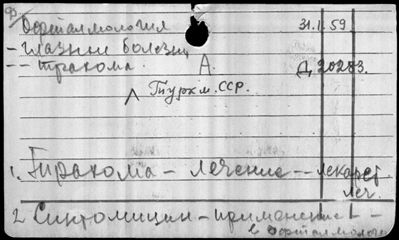 Офтальмология 31.1.59
- глазные болезни
-- трахома. А. Д 20283.
Туркм. ССР.
1. Трахома - лечение -- лекарст.
леч.
2 Синтомицин - применение -
в офтальмологи